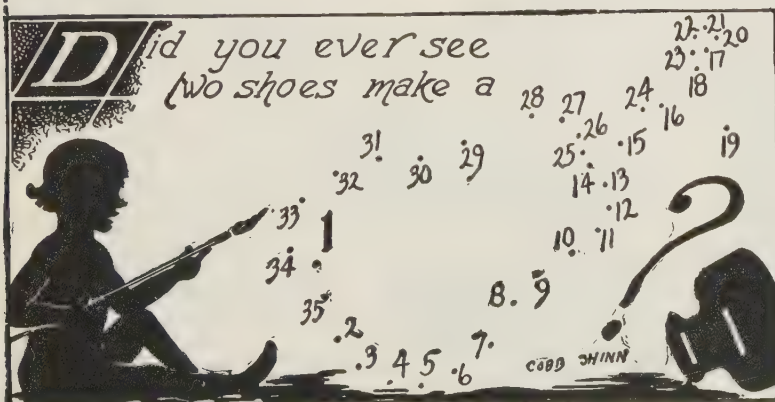 Did you ever see
two shoes make a
22 21 20
23 17
18
28 27 24 16
26
25 15 19
31
32 30 29
14 13
12
33 1
10 11
34
8 9
35
2
3 4 5 6 7
?
COBB SHINN